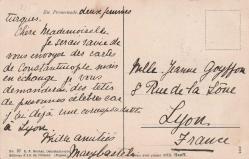 En Promenade, deux femmes
Turques.
Chère Mademoiselle
Je serai ravie de
vous envoyer des cartes
de Constantinople mais
en échange je vous
demanderai des têtes
de personnes célèbres car
j'ai déjà une correspondante
à Lyon.
Mille amitiés
Mlle Jeanne Goyffon
8 Rue de la Sône
Lyon
France